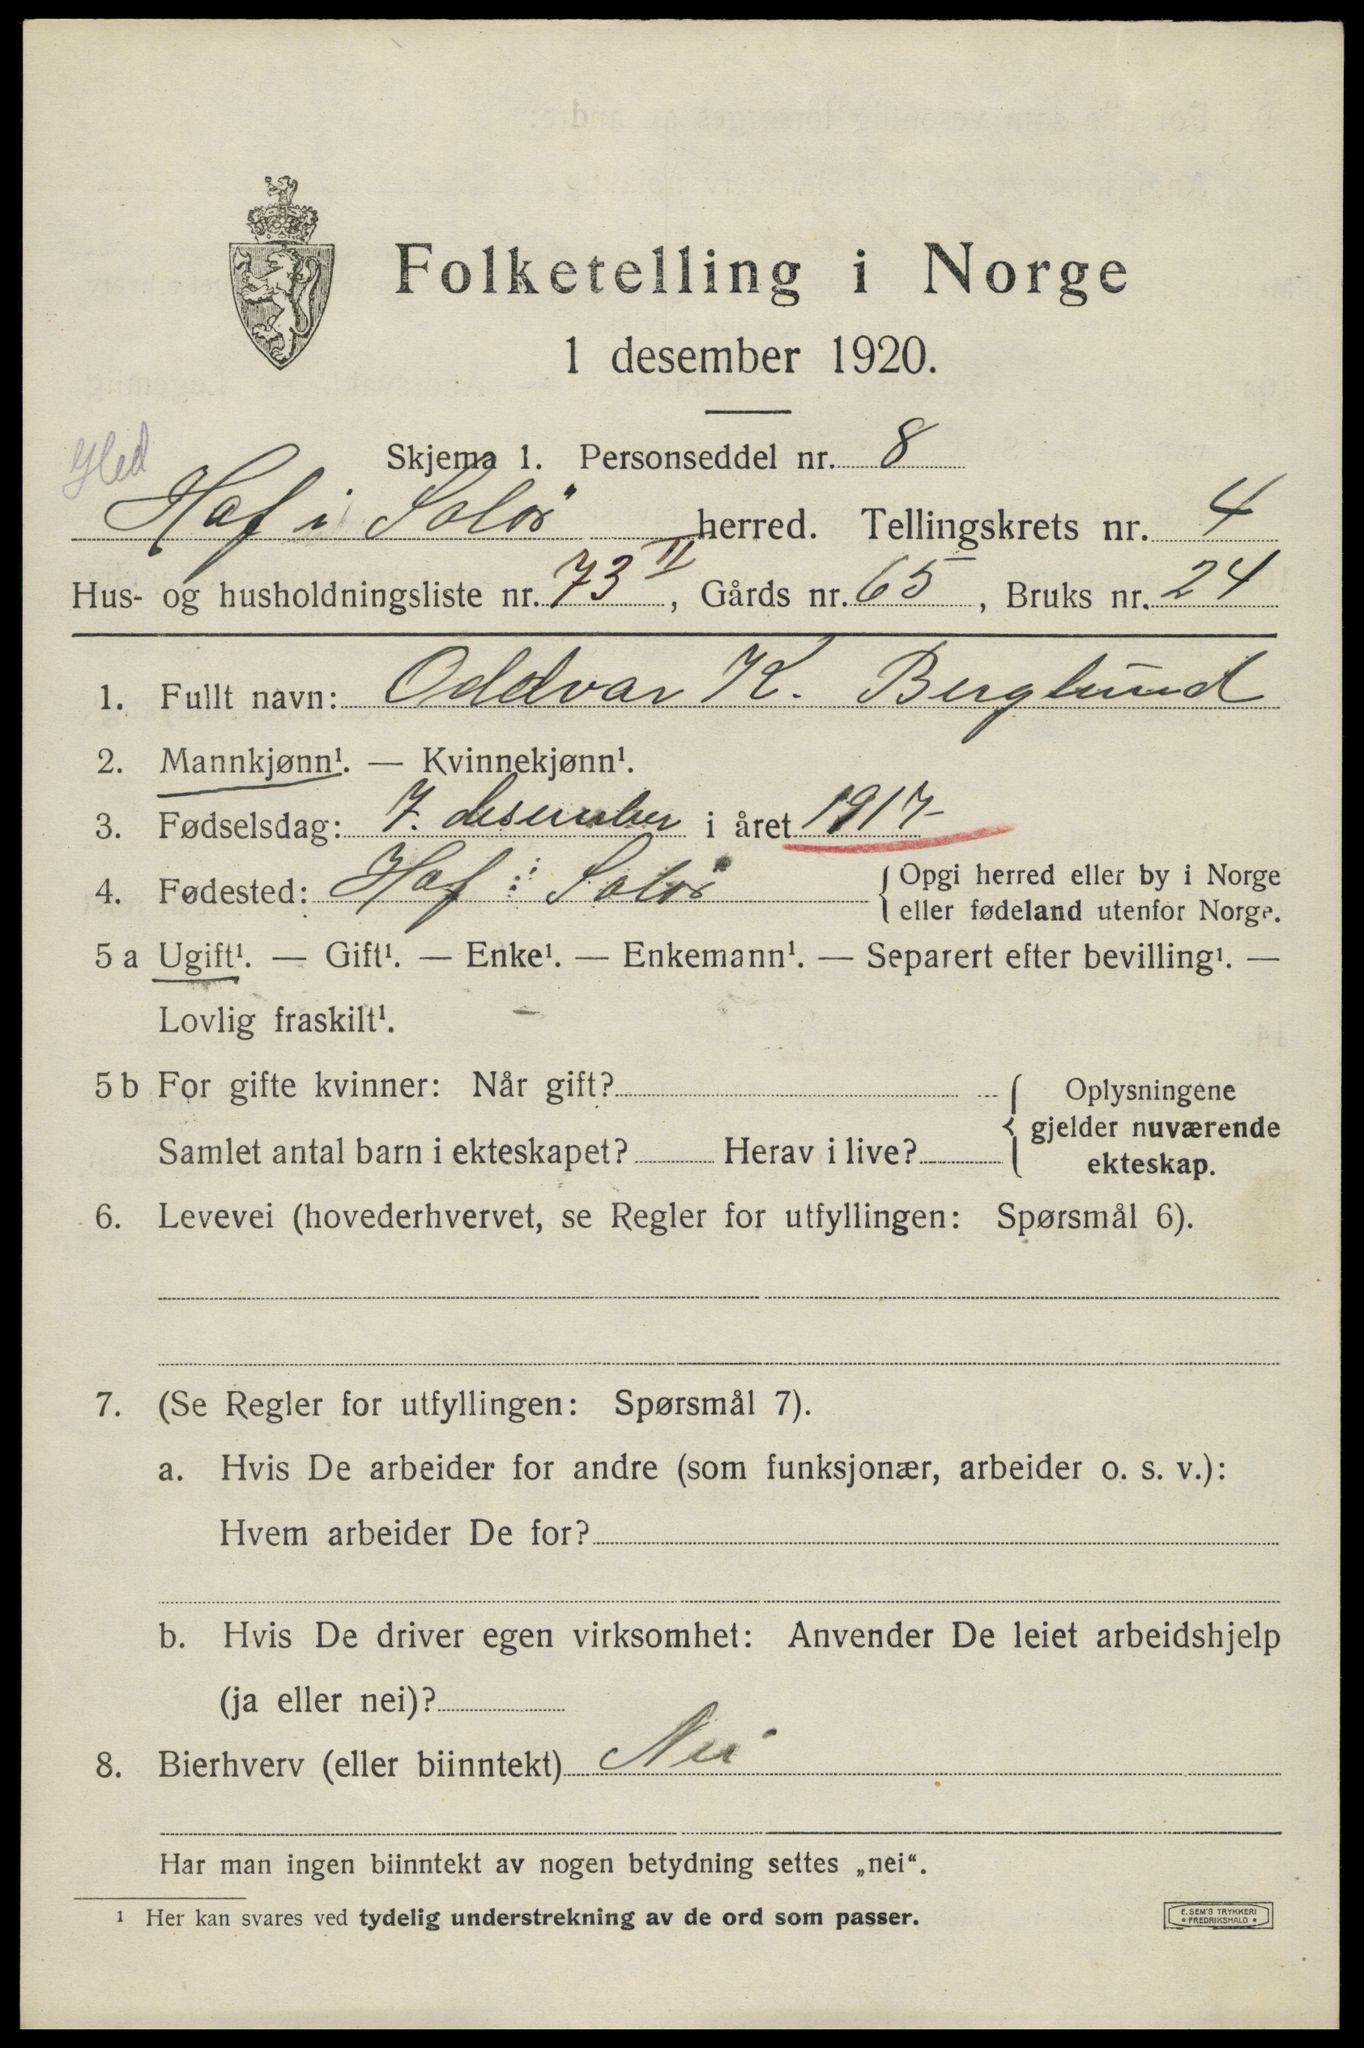 Folketelling i Norge
1 desember 1920.
Skjema 1. Personseddel nr. 8
Hof i Solör herred. Tellingskrets nr. 4
Hus- og husholdningsliste nr. 73 II, Gårds nr. 65, Bruks nr. 24
1. Fullt navn: Oddvar K. Berglund
2. Mannkjønn¹. — Kvinnekjønn¹.
3. Fødselsdag: 7. desember i året 1917
4. Fødested: Hof i Solör {Opgi herred eller by i Norge
eller fødeland utenfor Norge.
5 a Ugift¹. — Gift¹. — Enke¹. — Enkemann¹. — Separert efter bevilling¹. —
Lovlig fraskilt¹.
5 b For gifte kvinner: Når gift?
Samlet antal barn i ekteskapet? Herav i live?
{Oplysningene
gjelder nuværende
ekteskap.
6. Levevei (hovederhvervet, se Regler for utfyllingen: Spørsmål 6).
7. (Se Regler for utfyllingen: Spørsmål 7).
a. Hvis De arbeider for andre (som funksjonær, arbeider o. s. v.):
Hvem arbeider De for?
b. Hvis De driver egen virksomhet: Anvender De leiet arbeidshjelp
(ja eller nei)?
8. Bierhverv (eller biinntekt) Nei
Har man ingen biinntekt av nogen betydning settes „nei“.
¹ Her kan svares ved tydelig understrekning av de ord som passer.
E. SEM'S TRYKKERI
* FREDRIKSHALD *